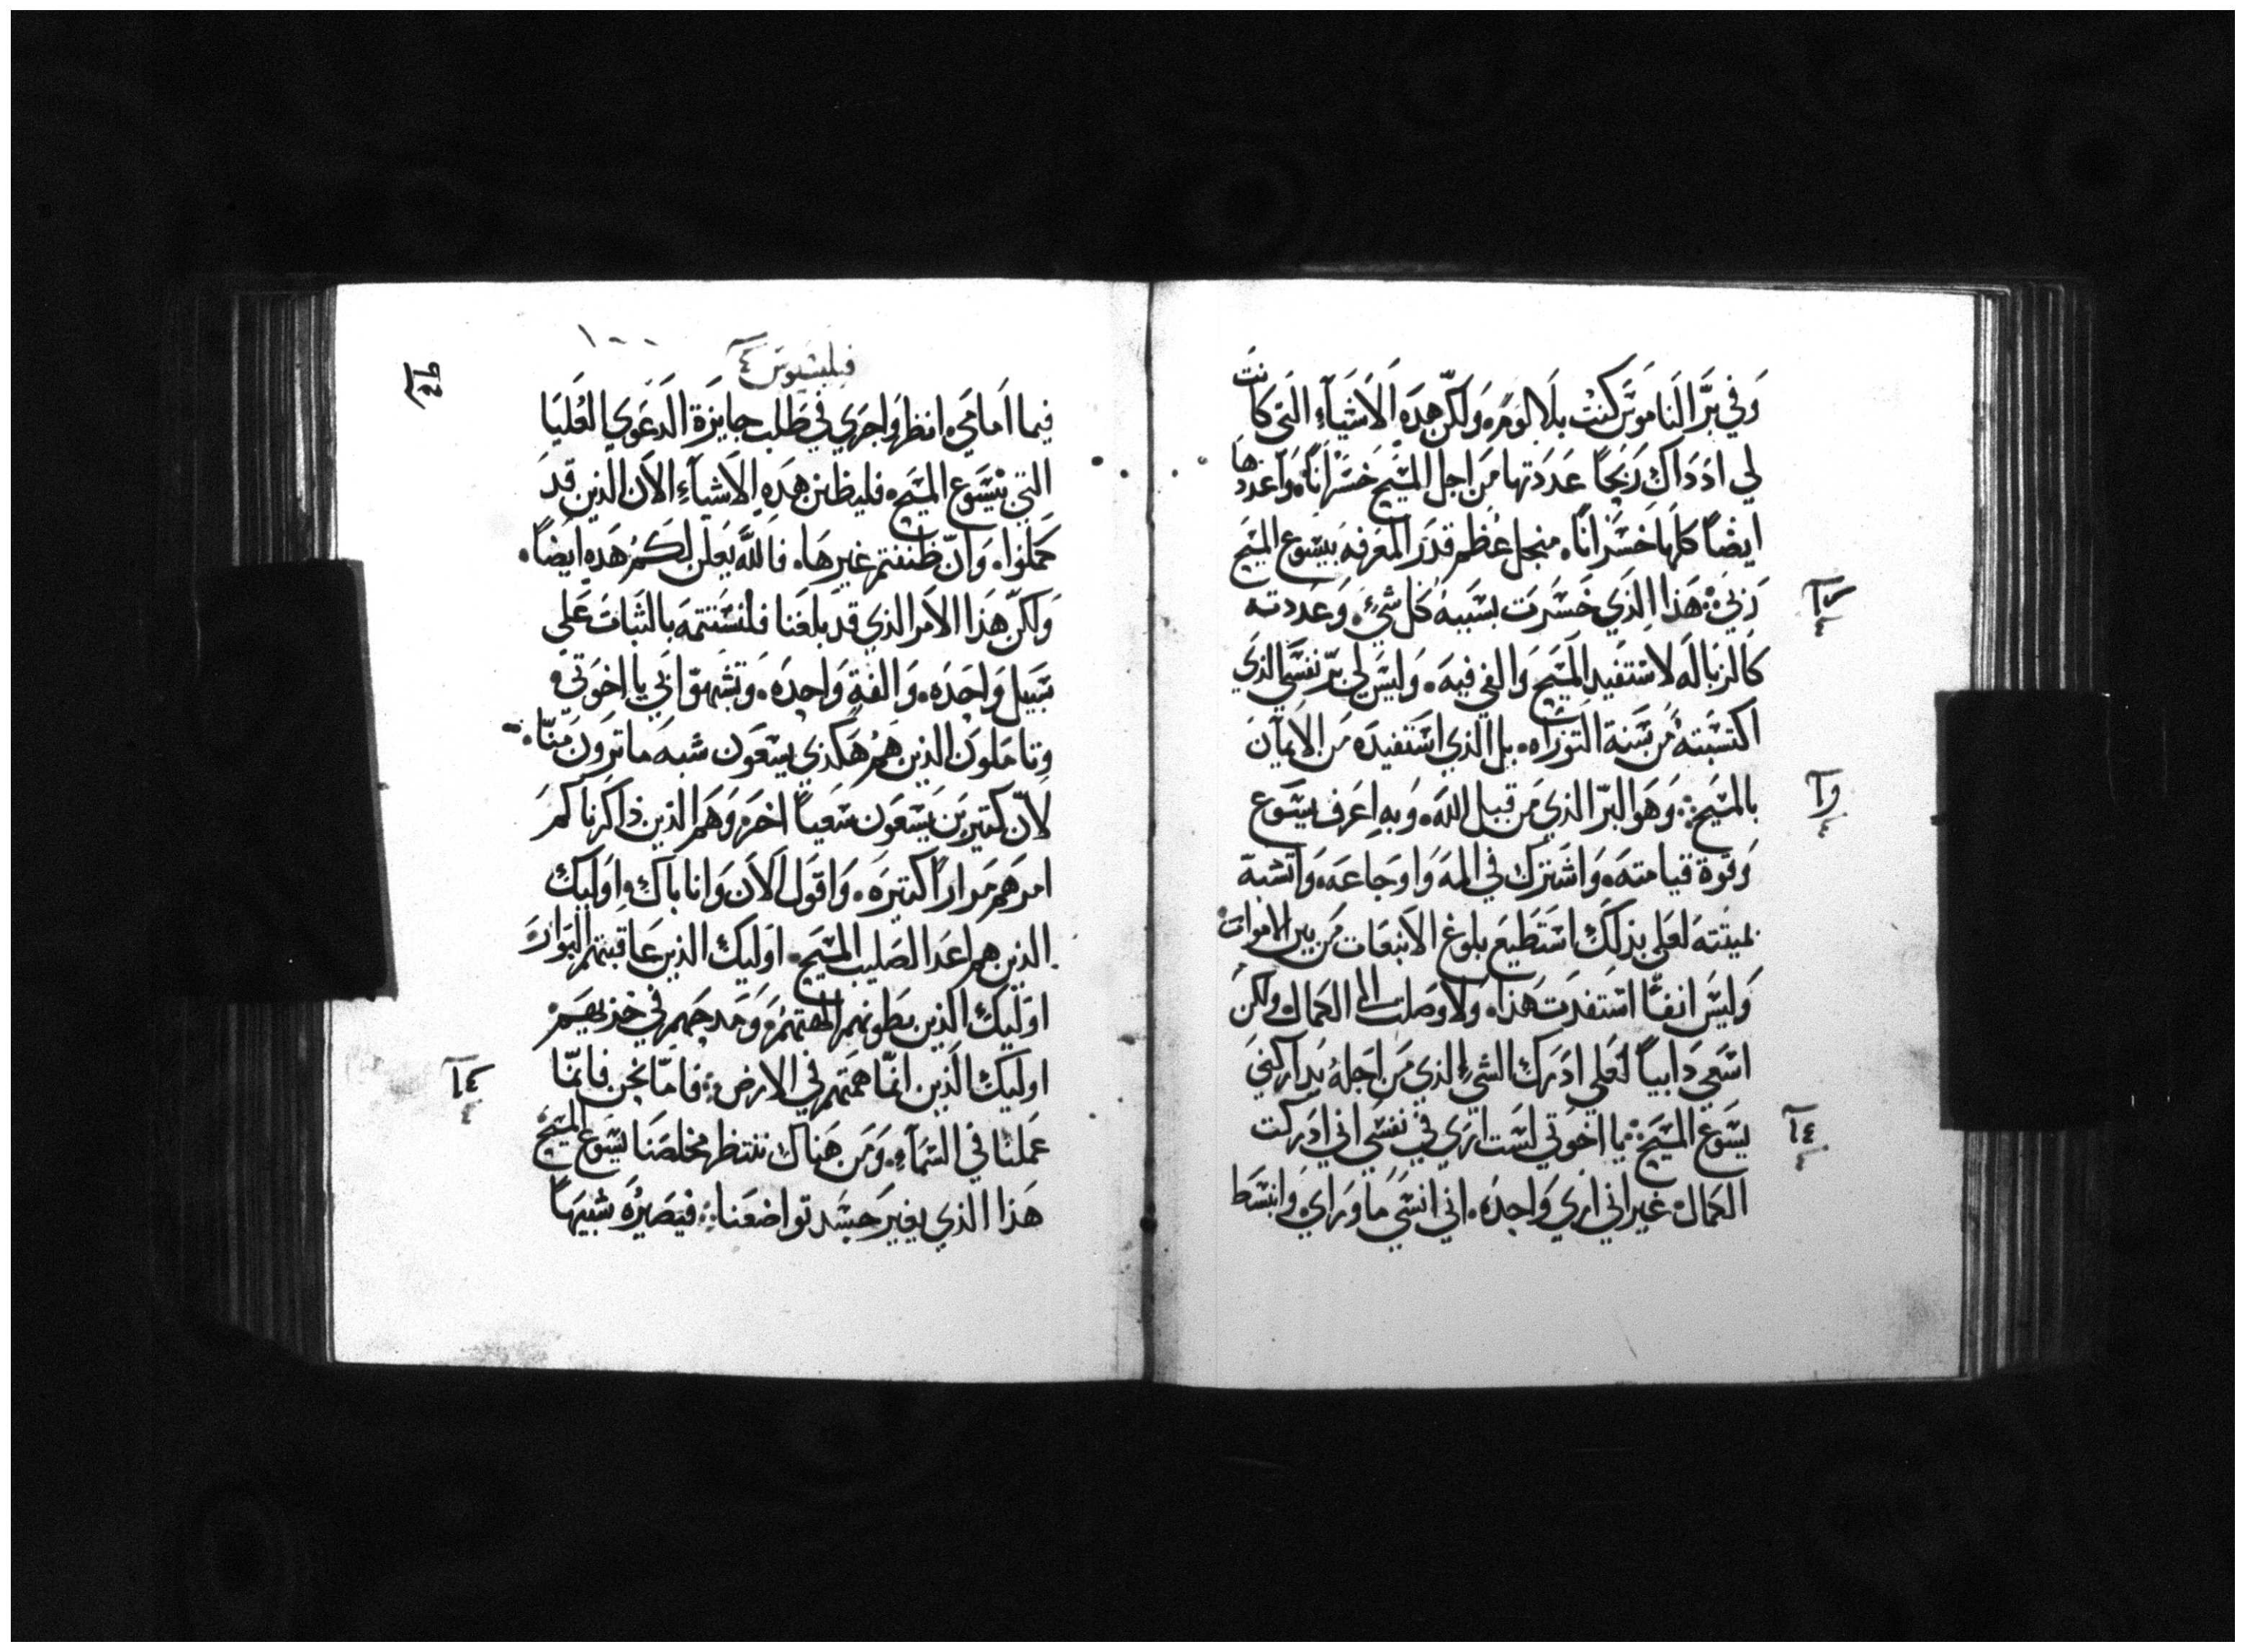 وَفي بَرَّ النَاموَسَ كنتْ بلَا لوَمَ، وَلكنّ هَدَه الَاشيَآءِ التي كانتَ
لي ادَدَاك رَبَحًا عَدَدَتها مَن اجل المسَيح خسَرانًا، وَاعَدَدها
ايضًا كلَها خسَرانًا، منجل عُظم قدَر المعَرفه بيسَوع المسَيح
رَبي، هَذا الذَي خَسَرَت بسَببهُ كل شيءٍ، وَعَددته
كالزباله لاسَتفيد المسَيح وَالفي فيهَ، وَليسَ لي برّ نفسَي الذي
اكتسَبته مُن سَنة التَوَراه، بل الذي اسَتفيدَه مَن الايمآن
بالمسَيح، وَهَو البرّ الذي مَن قبيل اللهَ، وَبه اعَرف يسَوع
وَقوَة قيامتهَ، وَاشَترك في المهَ وَاوجاعَه، وَاتشبهّ
بميتته لعَلى بذلَك اسَتطيعَ بلوغ الانبعَات مَن بين الاموات
وَليسَ انفًا اسَتفدَت هَذا، وَلا وَصلت الى الكمال ولكن
اسَعَي دَايبًا لعَلي ادَرَك الشيءِ الذي مَن اجَلهُ يدَاركني
يسَوَع المسَيح، يا اخوَتي لسَت ارَي في نفسَي اني ادَركت
الكمال، غير اني ارَي وَاحدَه، اني انسَي مَا وَرَاي، وَانبسَط
فيلبسيوس ٤
فيما اَمامَي، انظر وَاجرَي في طَلب جايزَة الدَعَوَي العُليَا
التي بيسَوع المسَيح، فليظن هَدَهِ الاشيآءِ الان الذين قدَ
كمَلوا، وَانّ ظننتم غيرهَا، فاللهَّ يعَلن لكمُ هَدَهِ ايضًا،
وَلكنّ هَذا الامَر الذي قدَ بلَغَنا فلنسَتتمهَ بالثبَات عَلي
سَبيل وَاحَدَه، وَالفةٍ وَاحِدَه، وَتشبهوّا بي يا اِخوَتي،
وتاَمَلوَن الذين هَمُ هَكذي يسَعَون شبه مَا ترَون منّا،
لانّ كتيرَين يسَعَون سَعَيًا اخَر، وَهَم الذين ذاكرَناكم
امرهَم مَرارًا كتيرَه، وَاقوَل الاَن وَانا باكٍ، وِاوَليك
الذين هم اعَدا الصَليب المسَيح، اوَليك الذين عَاقبتهم البَوارَ
اوَليك الذين بطونهم الهتهمَ، وَمَدحَهم في خزيهَم
اوليك الذين انمّا همَتهم في الارض، فامّا نحن فانمّا
عَملنا في السَمآءِ، وَمَن هَناك ننتظر مخلصَنا يسَوع المسَيحَ
هَذا الذي يغير جَسَد تواضعَنا، فيَصَيرُهَ شبيهًا